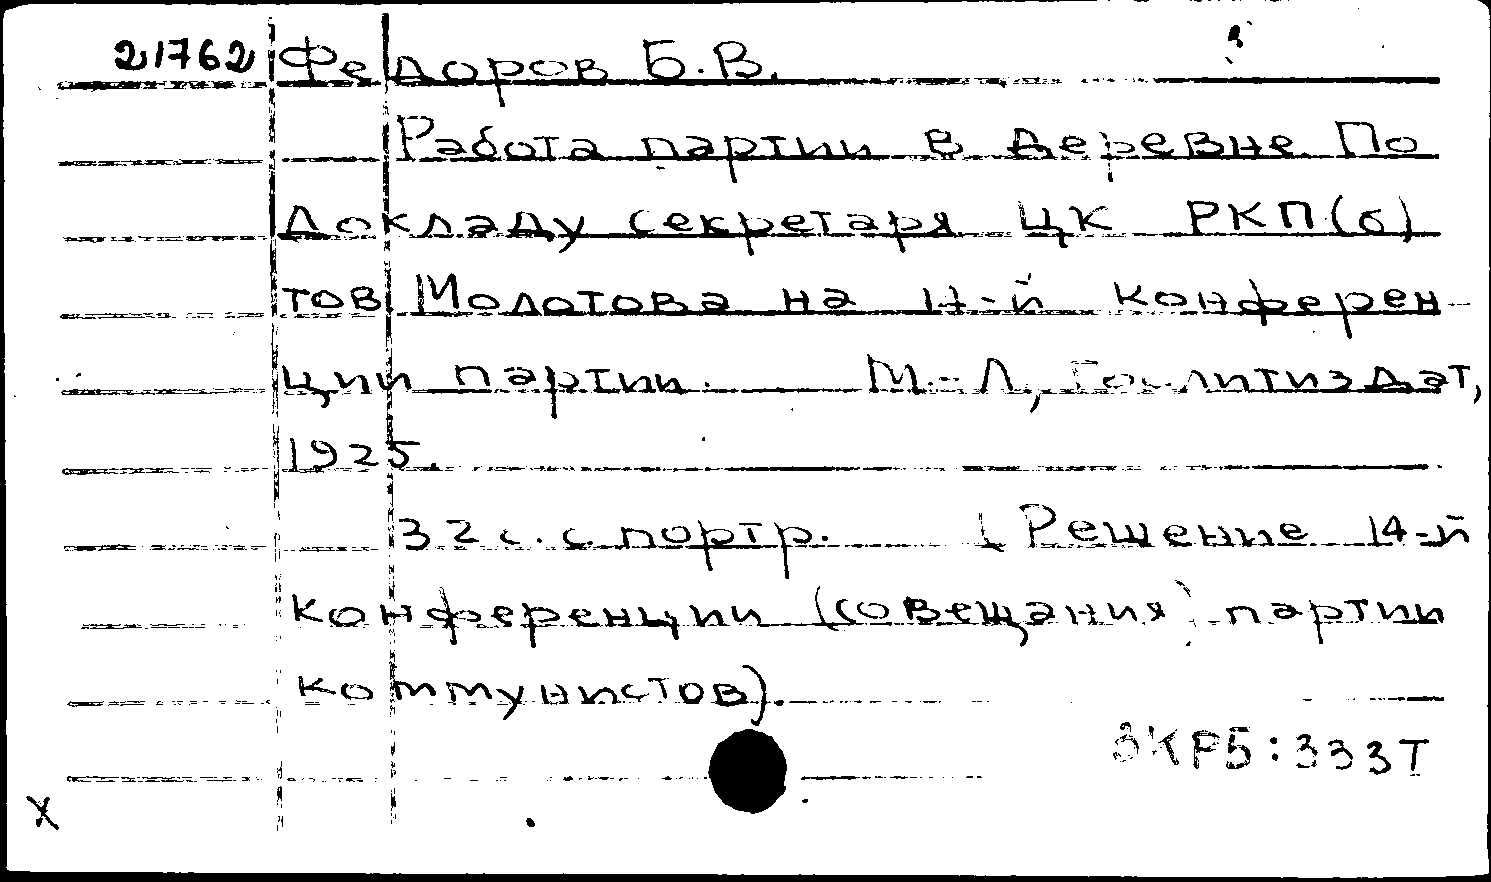 21762 Федоров Б.В.
Работа партии в деревне По
докладу секретаря ЦК РКП(б)
тов Молотова на 14-й конферен
ции партии. М.-Л, Госполитиздат,
1925.
32 с. с портр. ( Решение 14-й
конференции (совещания) партии
коммунистов).
3КР5:333Т
X